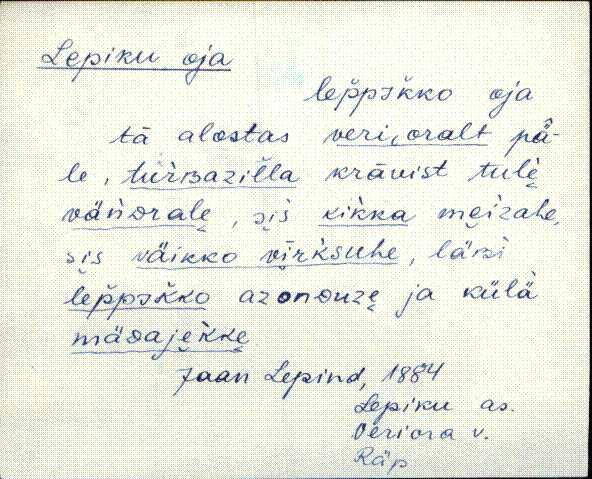 Lepiku oja
lep̌pɪk̆ko oja
tä alostas veri̭oralt pä-
le, türʙazil̆la kräùist tulè̬
vän̆ᴅralè̬, si̬s kikka mei̬zahe,
si̬s väikko vi̬rksuhe, läʙi
lep̌pɪk̆ko azonᴅuzè̬ ja külä
mäᴅaje̬k̆ke̬
Jaan Lepind, 1884
Lepiku as.
Veriora v.
Räp